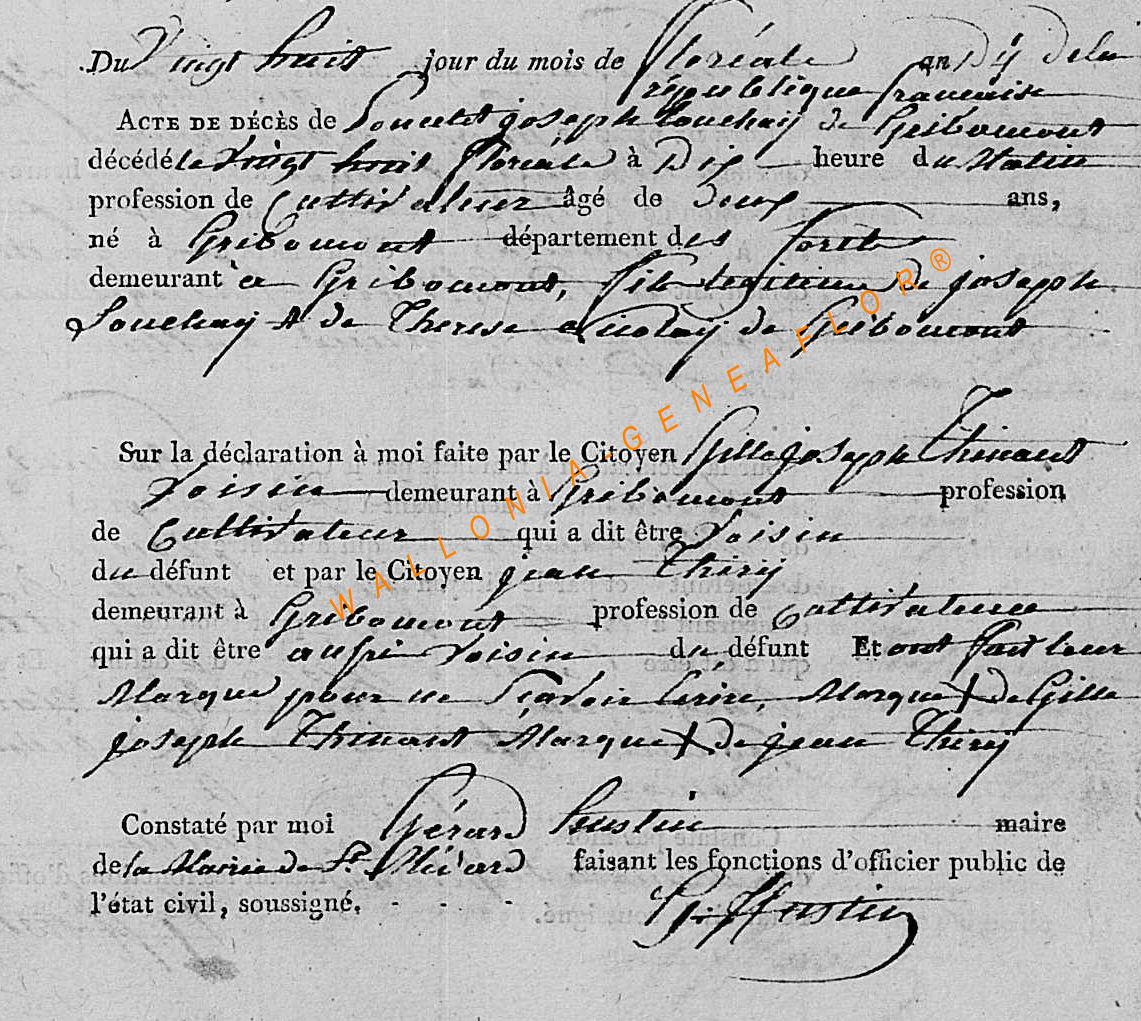 Du Vingt huit jour du mois de floréale an Dix dela
république francaise
ACTE DE DÉCÈS de Poncelet joseph Louchay de Gribomont
décédé le vingt huit floréale à Dix heure du Matin
profession de Cultivateur âgé de Deux ans,
né à Gribomont département des forets
demeurant a Gribomont, fils legitime De joseph
Louchay & de Therese de Gribomont
Sur la déclaration à moi faite par le Citoyen Gille joseph Thinant
Voisin demeurant à Gribomont profession
de Cultivateur qui a dit être Voisin
du défunt et par le Citoyen jean Thiry
demeurant à Gribomont profession de Cultivateur
qui a dit être aussi Voisin du défunt Et ont fait leur
Marque pour ne Scavoir Ecrire, Marque + de Gille
joseph Thinant Marque + De jean Thiry
Constaté par moi Gérard hustin maire
de la Mairie de St. Médard faisant les fonctions d'officier public de
l'état civil, soussigné. - - -
G. Hustin
WALLONIA-GENEAFLOR®